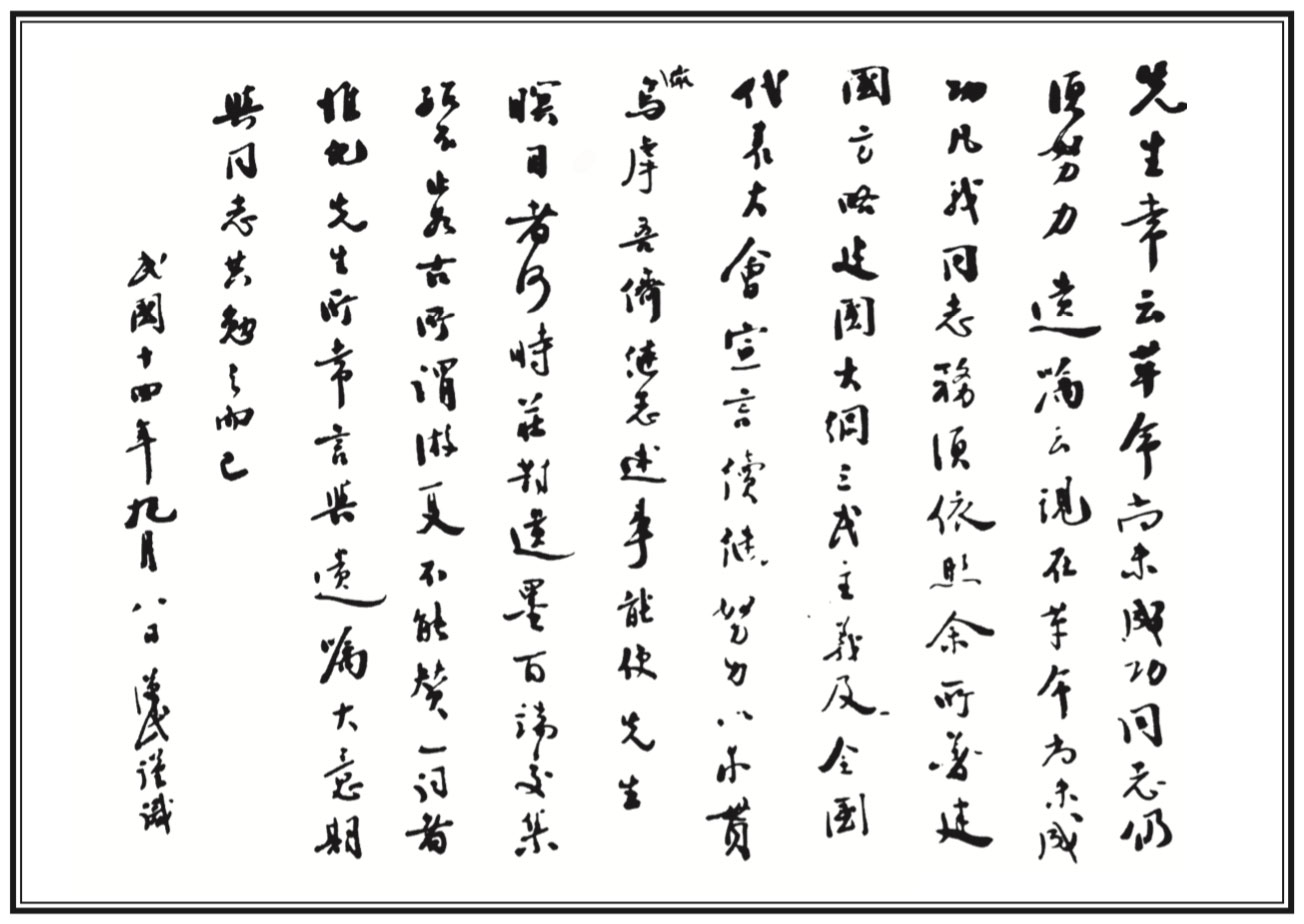 先生常云革命尚未成功同志仍
須努力遺囑云現在革命尚未成
功凡我同志務須依照余所著建
國方略建國大綱三民主義及全國
代表大會宣言續繼努力以求貫
徹
烏虖吾儕繼志述事能使先生
瞑目者何時莊對遺墨百端交集
古所謂游夏不能贊一詞者
惟記先生所常言與遺囑大意期
與同志共勉之而已
民國十四年九月八日漢民謹識